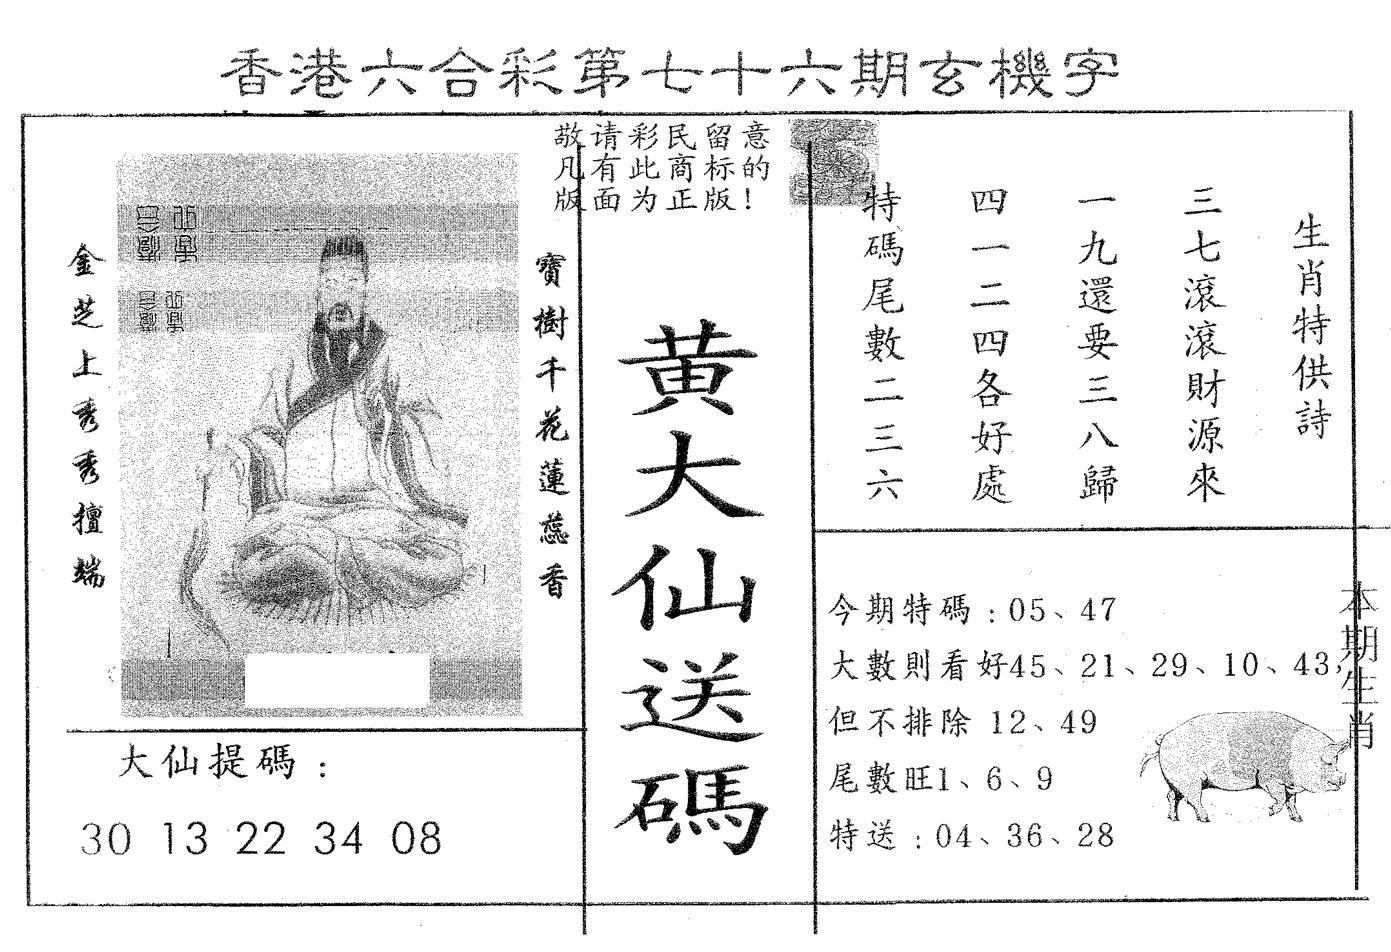 香港六合彩第七十六期玄機字
敬请彩民留意
凡有此商标的
版面为正版!
生肖特供詩
三七滾滾財源來
一九還要三八歸
四一二四各好處
特碼尾數二三六
寶樹千花蓮蕊香
金芝上秀秀擅端
黄大仙送碼
大仙提碼：
30 13 22 34 08
今期特碼：05、47
大數則看好45、21、29、10、43,
但不排除 12、49
尾數旺1、6、9
特送：04、36、28
本期生肖